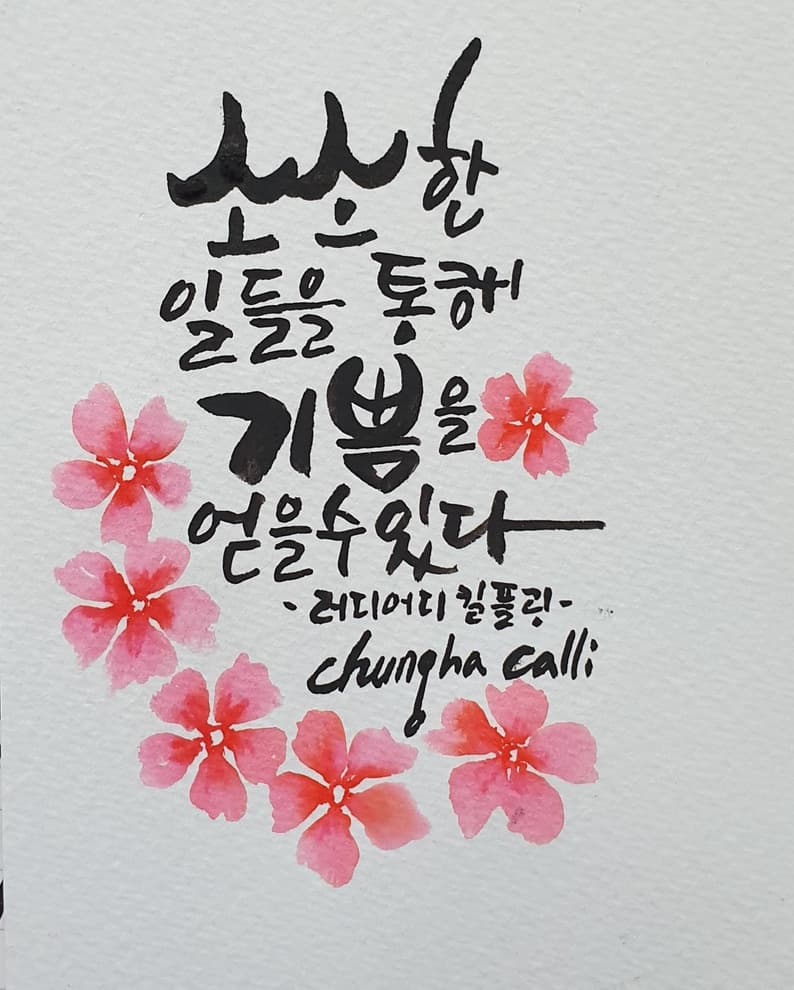 소소한
일들을 통해
기쁨을
얻을수있다
- 러디어디 킬플링 -
chungha calli